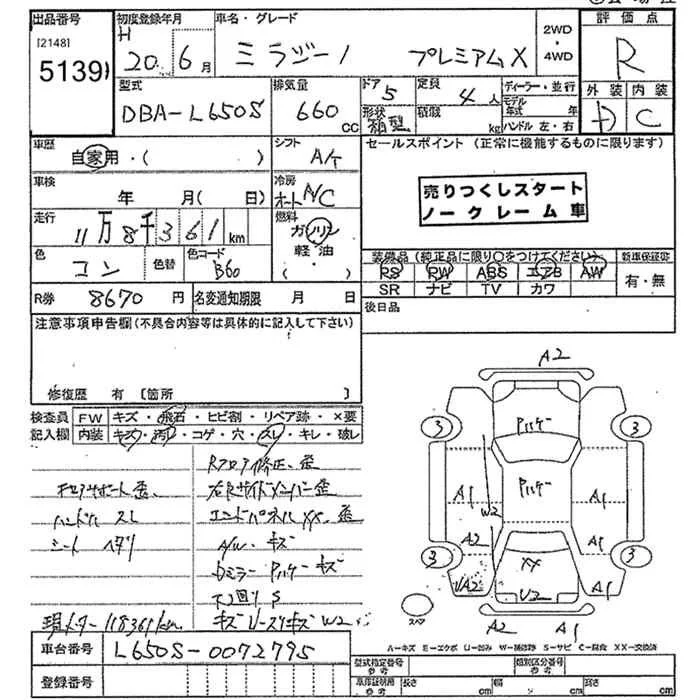 出品番号
[2148]
5139
初度登録年月
H
20年 6月
車名・グレード
ミラジーノ プレミアムX
2WD
・
4WD
評価点
R
型式
DBA-L650S
排気量
660 CC
ドア
5
形状
箱型
定員
4人
積載
kg
ディーラー・並行
モデル
年式 年
ハンドル 左・右
外装 内装
D C
車歴
自家用・( )
シフト
A/T
セールスポイント (正常に機能するものに限ります)
車検
年 月( 日)
冷房
オートA/C
売りつくしスタート
ノークレーム車
走行
11万8千361km
燃料
ガソリン
軽油
( )
色
コン
色替
色コード
B60
装備品(純正品に限り○をつけてください)
新車保証書
RS RW ABS エアB AW
SR ナビ TV カワ
有・無
R券 8670円
名変通知期限 月 日
後日品
注意事項申告欄(不具合内容等は具体的に記入して下さい)
修復歴 有 [箇所 ]
検査員
記入欄
FW キズ・飛石・ヒビ割・リペア跡・×要
内装 キズ・汚れ・コゲ・穴・スレ・キレ・破レ
Rフロア修正、歪
右Rサイドメンバー歪
ハンドル スレ
エンドパネルXX、歪
シート ヘタリ
A/W キズ
下回りS
現メーター118361km
A2
3 3
Pハゲ
Pハゲ
A1 W2 A1
A2 A1
3 3
VA2 XX A1
U2
A2 A1
スペア
A-キズ E-エクボ U-凹み W-補修跡 S-サビ C-腐食 XX-交換済
車台番号 L650S-0072795
登録番号
型式指定番号
参考
類別区分番号
参考
車庫証明用
参考
長さ cm
幅 cm
高さ cm